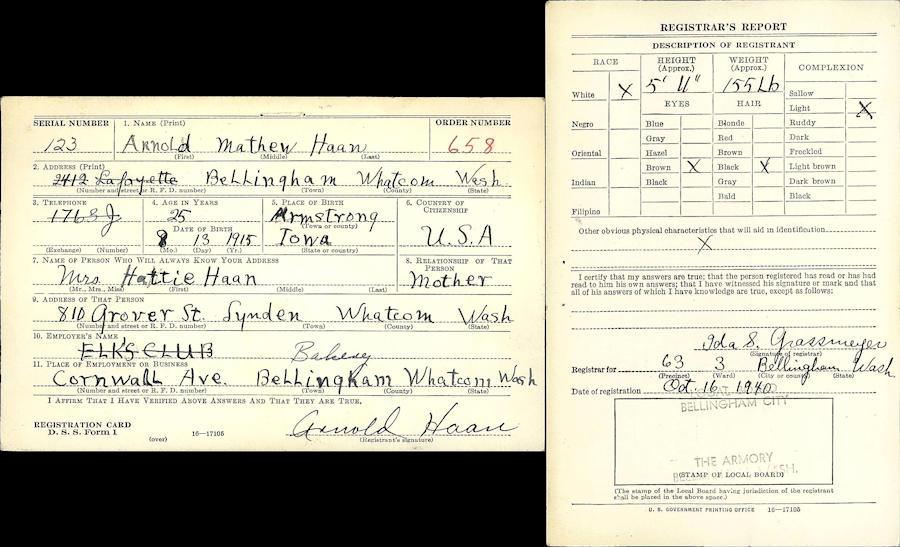 SERIAL NUMBER 1. NAME (Print) ORDER NUMBER
123 Arnold Mathew Haan 658
(First) (Middle) (Last)
2. ADDRESS (Print)
2412 Lafayette Bellingham Whatcom Wash.
(Number and street or R. F. D. number) (Town) (County) (State)
3. TELEPHONE 4. AGE IN YEARS 5. PLACE OF BIRTH 6. COUNTRY OF CITIZENSHIP
1768J 25 Armstrong
(Town or county)
DATE OF BIRTH
8 13 1915 Iowa U.S.A
(Exchange) (Number) (Mo.) (Day) (Yr.) (State or country)
7. NAME OF PERSON WHO WILL ALWAYS KNOW YOUR ADDRESS 8. RELATIONSHIP OF THAT PERSON
Mrs. Hattie Haan Mother
(Mr., Mrs., Miss) (First) (Middle) (Last)
9. ADDRESS OF THAT PERSON
810 Grover St. Lynden Whatcom Wash
(Number and street or R. F. D. number) (Town) (County) (State)
10. EMPLOYER'S NAME
ELK'S CLUB Bakery
11. PLACE OF EMPLOYMENT OR BUSINESS
Cornwall Ave. Bellingham Whatcom Wash
(Number and street or R. F. D. number) (Town) (County) (State)
I AFFIRM THAT I HAVE VERIFIED ABOVE ANSWERS AND THAT THEY ARE TRUE.
REGISTRATION CARD
D. S. S. Form 1 (over) 16—17105 Arnold Haan
(Registrant's signature)
REGISTRAR'S REPORT
DESCRIPTION OF REGISTRANT
RACE HEIGHT (Approx.) WEIGHT (Approx.) COMPLEXION
White X 5' 11" 155 Lb Sallow
EYES HAIR Light X
Negro Blue Blonde Ruddy
Gray Red Dark
Oriental Hazel Brown Freckled
Brown X Black X Light brown
Indian Black Gray Dark brown
Bald Black
Filipino
Other obvious physical characteristics that will aid in identification
X
I certify that my answers are true; that the person registered has read or has had
read to him his own answers; that I have witnessed his signature or mark and that
all of his answers of which I have knowledge are true, except as follows:
Ida S. Grassmeyer
(Signature of registrar)
Registrar for 63 3 Bellingham Wash
(Precinct) (Ward) (City or county) (State)
Date of registration Oct. 16 1940
BELLINGHAM CITY
THE ARMORY
(STAMP OF LOCAL BOARD)
(The stamp of the Local Board having jurisdiction of the registrant
shall be placed in the above space.)
U. S. GOVERNMENT PRINTING OFFICE 16—17105